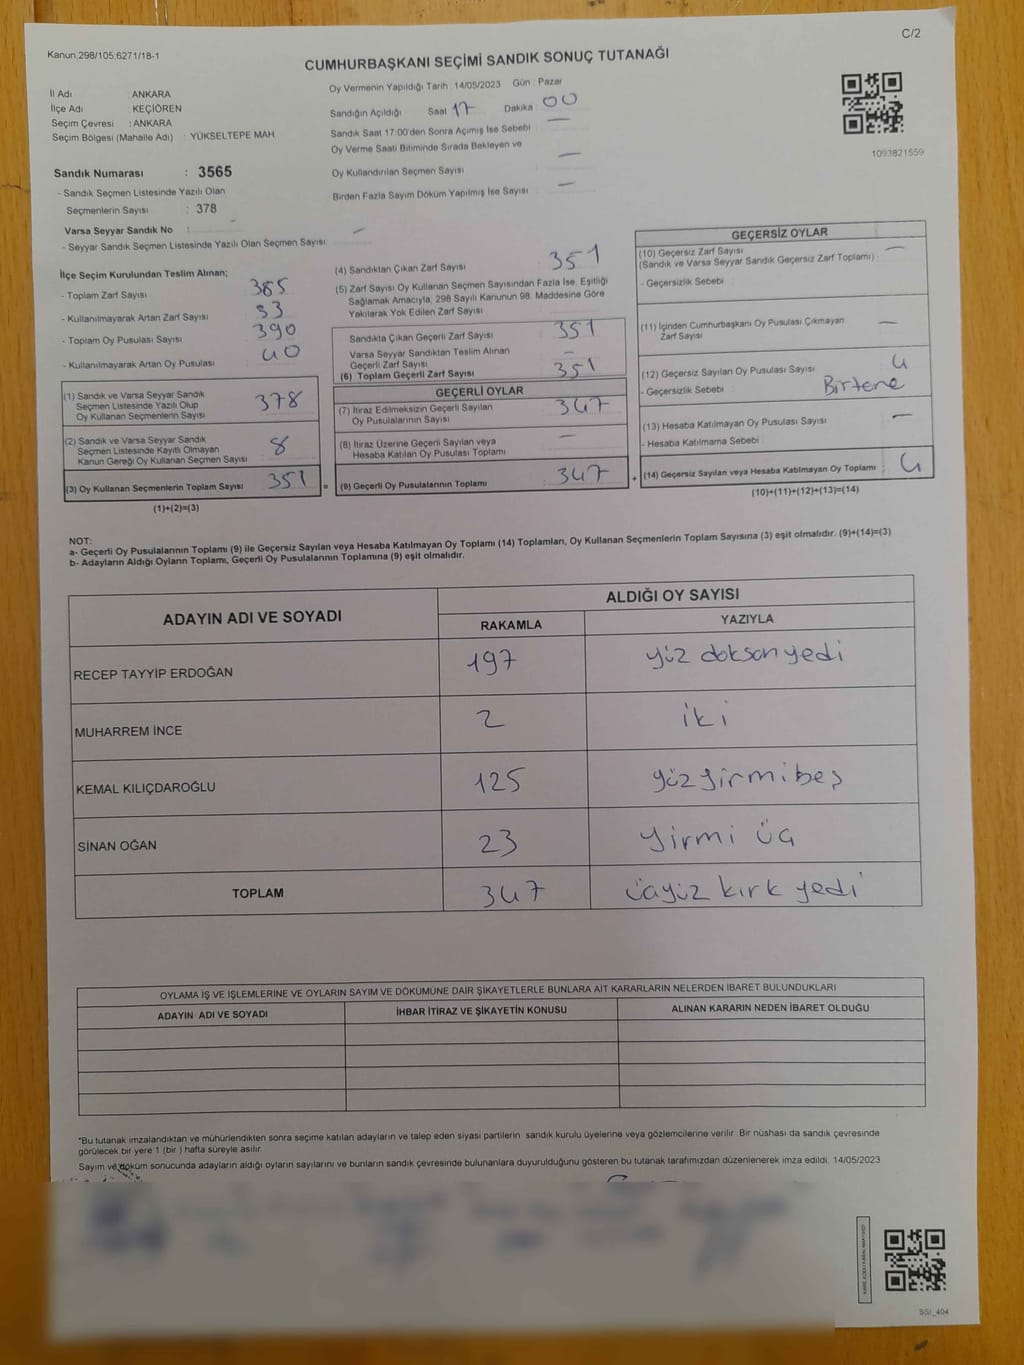 C/2
Kanun;298/105;6271/18-1
CUMHURBAŞKANI SEÇİMİ SANDIK SONUÇ TUTANAĞI
İl Adı : ANKARA
İlçe Adı : KEÇİÖREN
Seçim Çevresi : ANKARA
Seçim Bölgesi (Mahalle Adı) : YÜKSELTEPE MAH.
Sandık Numarası : 3565
- Sandık Seçmen Listesinde Yazılı Olan
Seçmenlerin Sayısı : 378
Varsa Seyyar Sandık No : –
- Seyyar Sandık Seçmen Listesinde Yazılı Olan Seçmen Sayısı –
Oy Vermenin Yapıldığı Tarih : 14/05/2023 Gün : Pazar
Sandığın Açıldığı Saat 17 Dakika : 00
Sandık Saat 17:00'den Sonra Açımış İse Sebebi –
Oy Verme Saati Bitiminde Sırada Bekleyen ve
Oy Kullandırılan Seçmen Sayısı –
Birden Fazla Sayım Döküm Yapılmış İse Sayısı –
1093821559
İlçe Seçim Kurulundan Teslim Alınan;
- Toplam Zarf Sayısı 385
- Kullanılmayarak Artan Zarf Sayısı 33
- Toplam Oy Pusulası Sayısı 390
- Kullanılmayarak Artan Oy Pusulası 40
(1) Sandık ve Varsa Seyyar Sandık
Seçmen Listesinde Yazılı Olup
Oy Kullanan Seçmenlerin Sayısı 378
(2) Sandık ve Varsa Seyyar Sandık
Seçmen Listesinde Kayıtlı Olmayan
Kanun Gereği Oy Kullanan Seçmen Sayısı 8
(3) Oy Kullanan Seçmenlerin Toplam Sayısı 351 =
(1)+(2)=(3)
(4) Sandıktan Çıkan Zarf Sayısı 351
(5) Zarf Sayısı Oy Kullanan Seçmen Sayısından Fazla İse, Eşitliği
Sağlamak Amacıyla, 298 Sayılı Kanunun 98. Maddesine Göre
Yakılarak Yok Edilen Zarf Sayısı
Sandıkta Çıkan Geçerli Zarf Sayısı 351
Varsa Seyyar Sandıktan Teslim Alınan
Geçerli Zarf Sayısı –
(6) Toplam Geçerli Zarf Sayısı 351
GEÇERLİ OYLAR
(7) İtiraz Edilmeksizin Geçerli Sayılan
Oy Pusulalarının Sayısı 347
(8) İtiraz Üzerine Geçerli Sayılan veya
Hesaba Katılan Oy Pusulası Toplamı –
(9) Geçerli Oy Pusulalarının Toplamı 347 +
GEÇERSİZ OYLAR
(10) Geçersiz Zarf Sayısı –
(Sandık ve Varsa Seyyar Sandık Geçersiz Zarf Toplamı)
- Geçersizlik Sebebi
(11) İçinden Cumhurbaşkanı Oy Pusulası Çıkmayan
Zarf Sayısı –
(12) Geçersiz Sayılan Oy Pusulası Sayısı 4
- Geçersizlik Sebebi Birtene
(13) Hesaba Katılmayan Oy Pusulası Sayısı –
- Hesaba Katılmama Sebebi
(14) Geçersiz Sayılan veya Hesaba Katılmayan Oy Toplamı 4
(10)+(11)+(12)+(13)=(14)
NOT:
a- Geçerli Oy Pusulalarının Toplamı (9) ile Geçersiz Sayılan veya Hesaba Katılmayan Oy Toplamı (14) Toplamları, Oy Kullanan Seçmenlerin Toplam Sayısına (3) eşit olmalıdır. (9)+(14)=(3)
b- Adayların Aldığı Oyların Toplamı, Geçerli Oy Pusulalarının Toplamına (9) eşit olmalıdır.
ADAYIN ADI VE SOYADI
ALDIĞI OY SAYISI
RAKAMLA YAZIYLA
RECEP TAYYİP ERDOĞAN 197 yüz doksan yedi
MUHARREM İNCE 2 iki
KEMAL KILIÇDAROĞLU 125 yüz yirmi beş
SİNAN OĞAN 23 yirmi üç
TOPLAM 347 üçyüz kırk yedi
OYLAMA İŞ VE İŞLEMLERİNE VE OYLARIN SAYIM VE DÖKÜMÜNE DAİR ŞİKAYETLERLE BUNLARA AİT KARARLARIN NELERDEN İBARET BULUNDUKLARI
ADAYIN ADI VE SOYADI İHBAR İTİRAZ VE ŞİKAYETİN KONUSU ALINAN KARARIN NEDEN İBARET OLDUĞU
*Bu tutanak imzalandıktan ve mühürlendikten sonra seçime katılan adayların ve talep eden siyasi partilerin sandık kurulu üyelerine veya gözlemcilerine verilir. Bir nüshası da sandık çevresinde
görülecek bir yere 1 (bir ) hafta süreyle asılır.
Sayım ve döküm sonucunda adayların aldığı oyların sayılarını ve bunların sandık çevresinde bulunanlara duyurulduğunu gösteren bu tutanak tarafımızdan düzenlenerek imza edildi. 14/05/2023
SSI_404